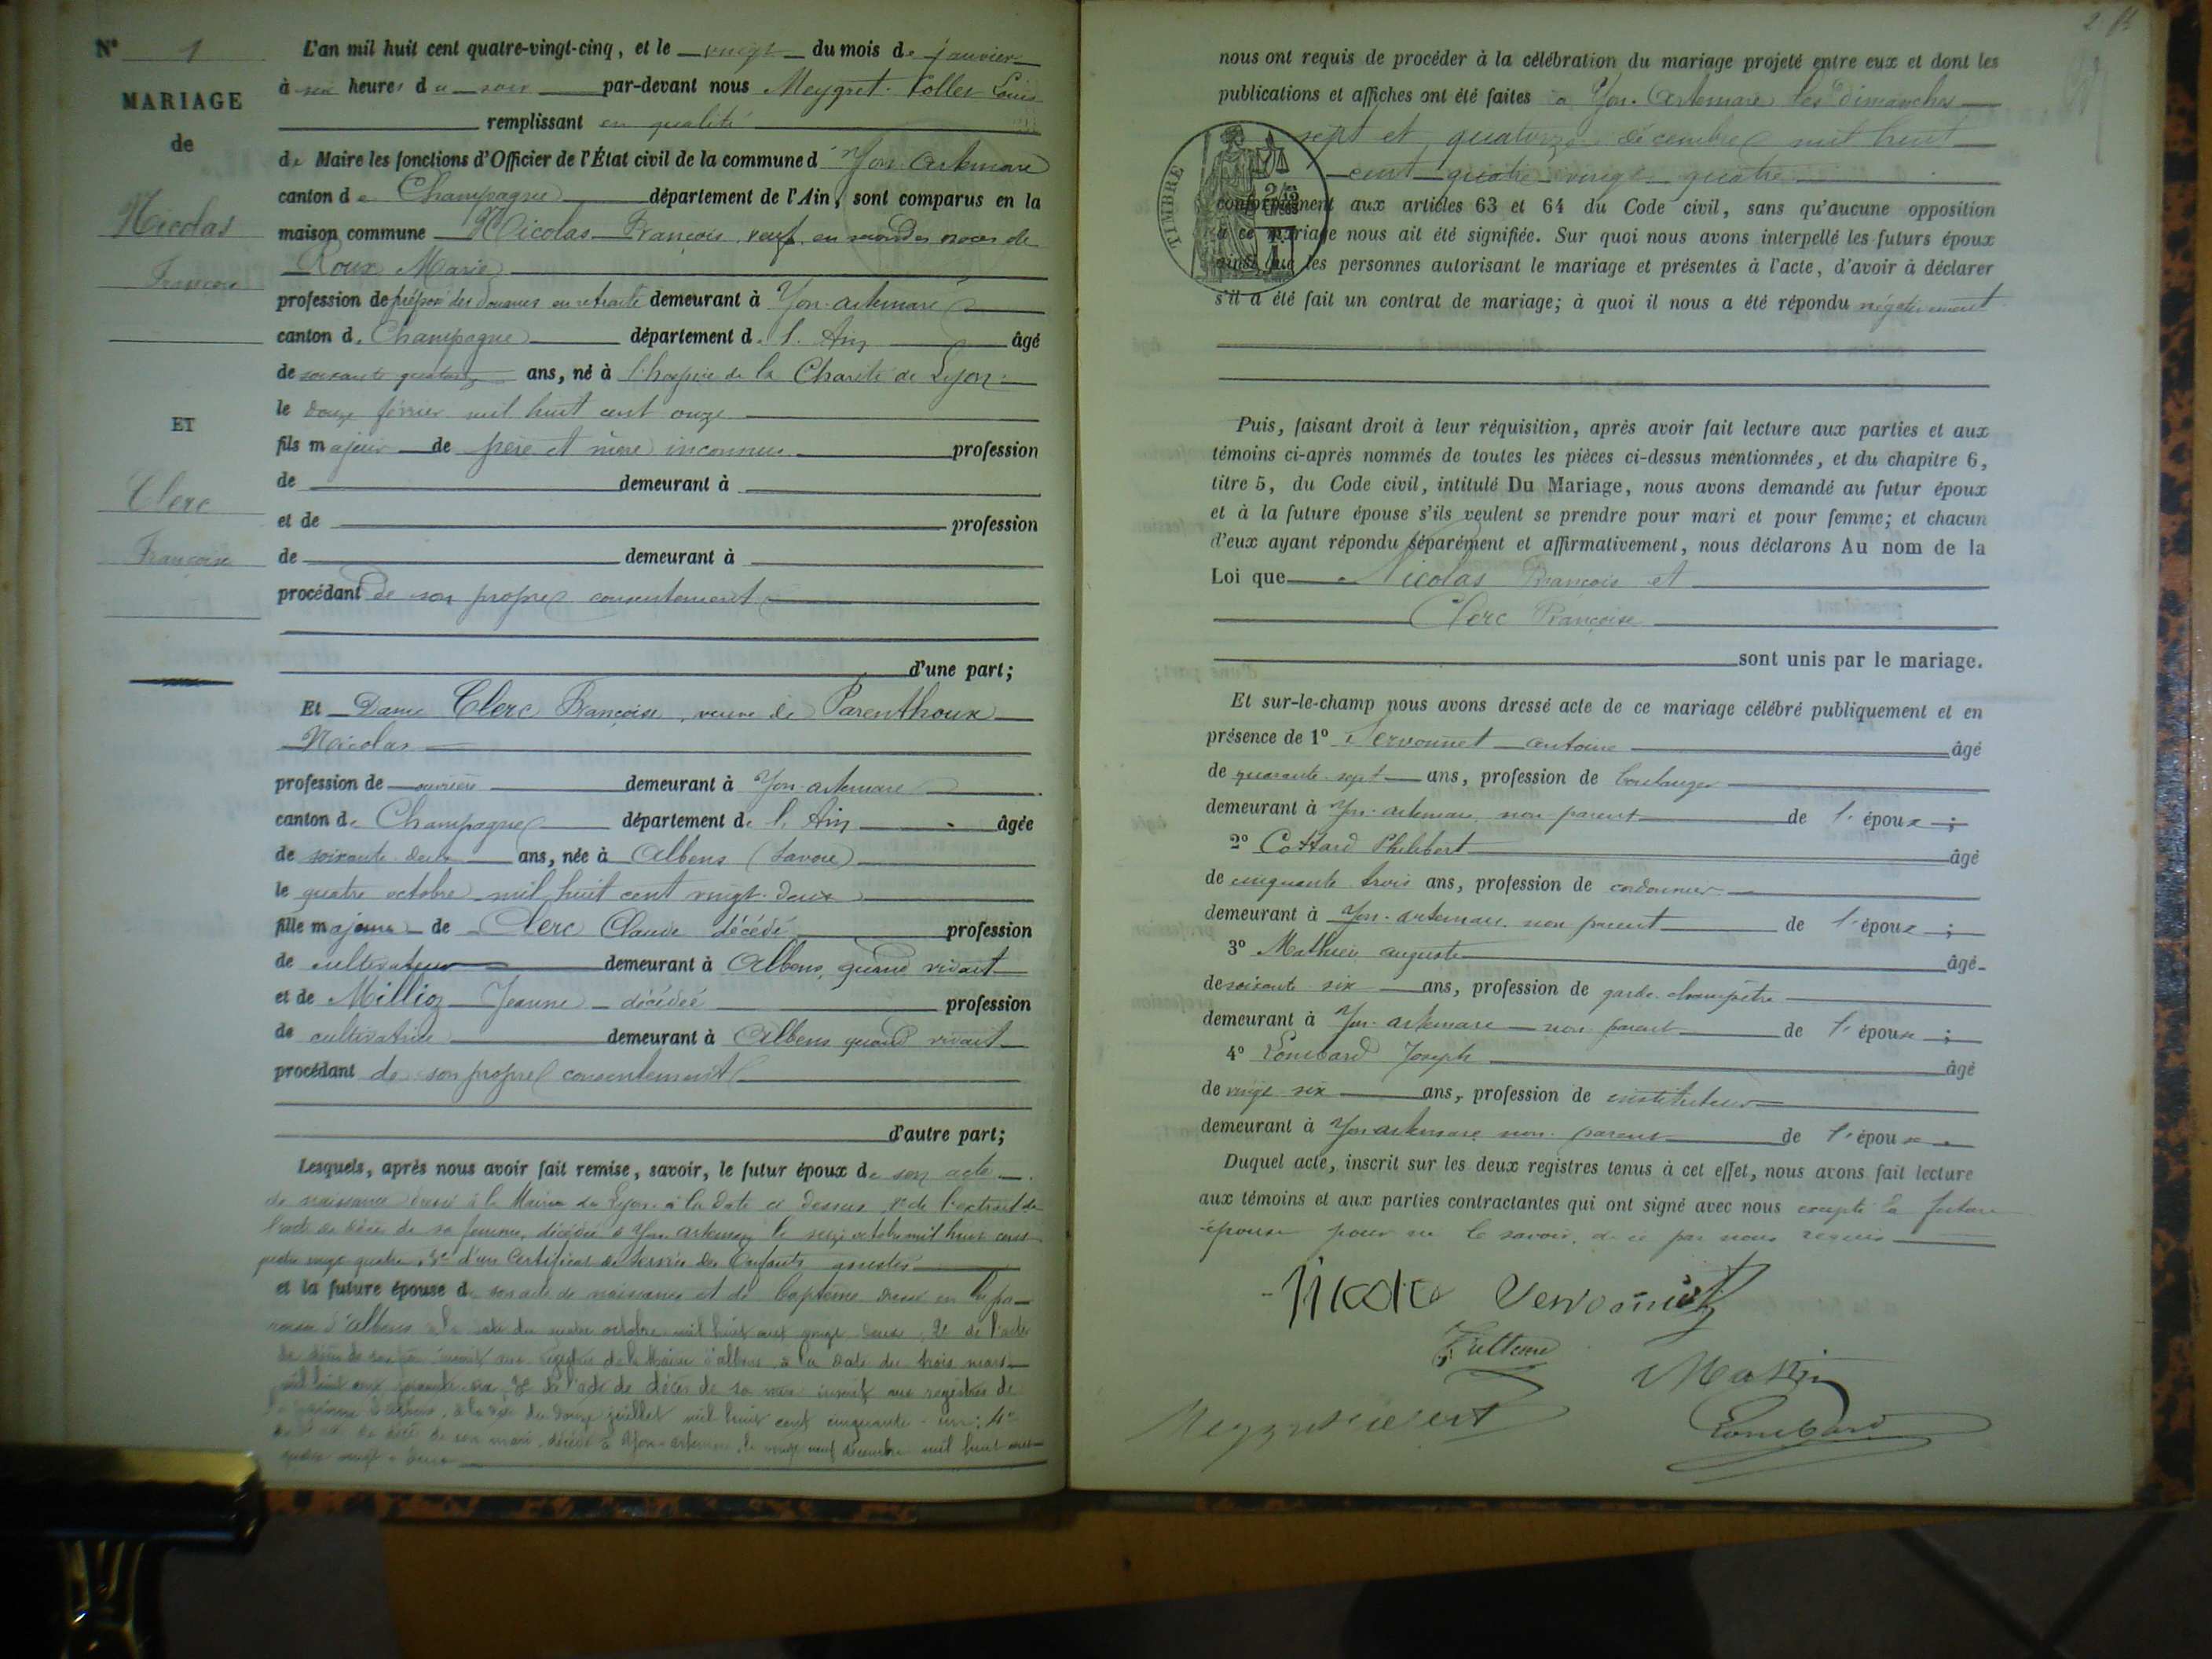 N° 1
MARIAGE
de
Nicolas
François
ET
Clerc
Françoise
L'an mil huit cent quatre-vingt-cinq, et le vingt du mois de janvier
à six heures du soir par-devant nous Meygret Collet Louis
remplissant en qualité
de Maire les fonctions d'Officier de l'État civil de la commune d'Yon-Artemare
canton de Champagne département de l'Ain, sont comparus en la
maison commune Nicolas François, veuf en secondes noces de
Roux Marie
profession de préposé des douanes en retraite demeurant à Yon-artemare
canton de Champagne département de l'Ain âgé
de soixante quatorze ans, né à l'hospice de la Charité de Lyon
le douze février mil huit cent onze
fils majeur de père et mère inconnus profession
de demeurant à
et de profession
de demeurant à
procédant de son propre consentement
d'une part;
Et Dame Clerc Françoise, veuve de Parenthoux
Nicolas
profession de ouvrière demeurant à Yon-artemare
canton de Champagne département de l'Ain âgée
de soixante deux ans, née à Albens (Savoie)
le quatre octobre mil huit cent vingt-deux
fille majeure de Clerc Claude décédé profession
de cultivateur demeurant à Albens, quand vivait
et de Millioz Jeanne décédée profession
de cultivatrice demeurant à Albens quand vivait
procédant de son propre consentement
d'autre part;
Lesquels, après nous avoir fait remise, savoir, le futur époux de son acte
de naissance dressé à la Mairie de Lyon à la date ci dessus, 2° de l'extrait de
l'acte de décès de sa femme, décédée à Yon artemare le seize octobre mil huit cent
quatre vingt quatre, 3° d'un certificat du service des Enfants assistés
et la future épouse de son acte de naissance et de baptême dressé en la pa-
roisse d'Albens à la date du quatre octobre mil huit cent vingt deux, 2° de l'acte
de décès de son père inscrit aux registres de la Mairie d'albens à la date du trois mars
mil huit cent quarante six 3° de l'acte de décès de sa mère inscrit aux registres de
à la date du douze juillet mil huit cent cinquante-un; 4°
de l'acte de décès de son mari, décédé à Yon-artemare, le vingt neuf décembre mil huit cent
quatre vingt deux
nous ont requis de procéder à la célébration du mariage projeté entre eux et dont les
publications et affiches ont été faites à Yon-Artemare les dimanches
sept et quatorze décembre mil huit
cent quatre vingt quatre
TIMBRE
conformément aux articles 63 et 64 du Code civil, sans qu'aucune opposition
à ce mariage nous ait été signifiée. Sur quoi nous avons interpellé les futurs époux
ainsi que les personnes autorisant le mariage et présentes à l'acte, d'avoir à déclarer
s'il a été fait un contrat de mariage; à quoi il nous a été répondu négativement
Puis, faisant droit à leur réquisition, après avoir fait lecture aux parties et aux
témoins ci-après nommés de toutes les pièces ci-dessus mentionnées, et du chapitre 6,
titre 5, du Code civil, intitulé Du Mariage, nous avons demandé au futur époux
et à la future épouse s'ils veulent se prendre pour mari et pour femme; et chacun
d'eux ayant répondu séparément et affirmativement, nous déclarons Au nom de la
Loi que Nicolas François et
Clerc Françoise
sont unis par le mariage.
Et sur-le-champ nous avons dressé acte de ce mariage célébré publiquement et en
présence de 1° Servonnet antoine âgé
de quarante-sept ans, profession de boulanger
demeurant à Yon-artemare non parent de l'époux;
2° Cottard Philibert âgé
de cinquante trois ans, profession de cordonnier
demeurant à Yon-artemare non parent de l'époux;
3° Mathieu auguste âgé
de soixante six ans, profession de garde champêtre
demeurant à Yon-artemare non parent de l'époux;
4° Lombard Joseph âgé
de vingt six ans, profession de instituteur
demeurant à Yon artemare non parent de l'époux
Duquel acte, inscrit sur les deux registres tenus à cet effet, nous avons fait lecture
aux témoins et aux parties contractantes qui ont signé avec nous excepté la future
épouse pour ne le savoir, de ce par nous requis
Servonnet
Lombard